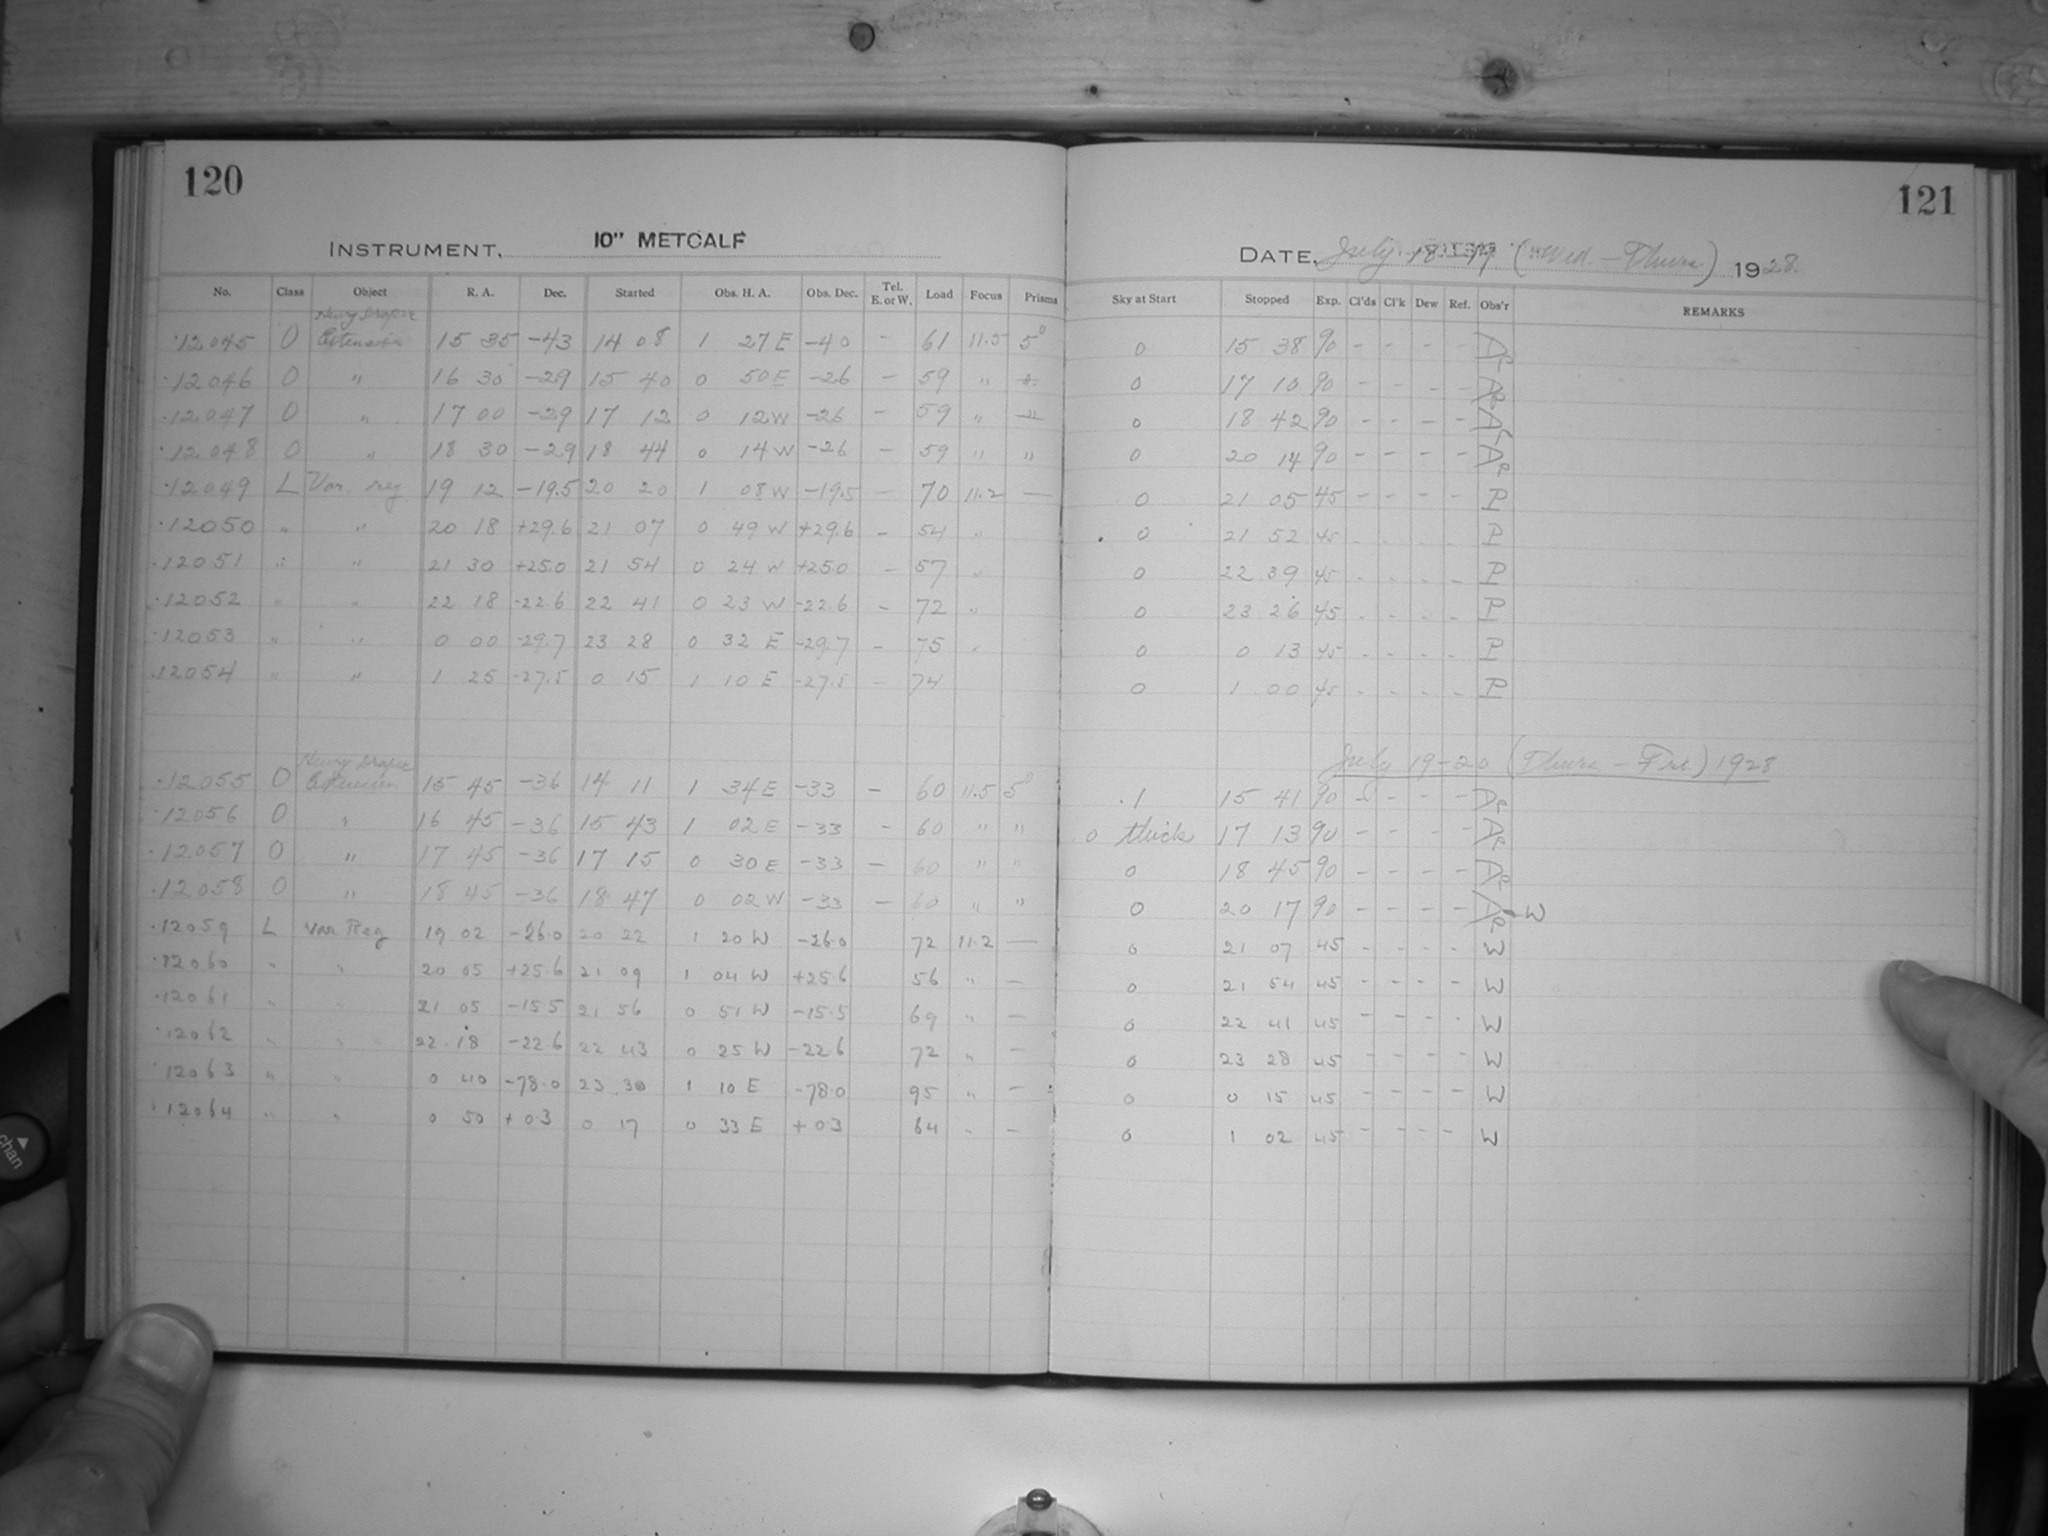 120
121
INSTRUMENT, 10" METCALF
DATE, July 18-19 (Wed. - Thurs.) 1928.
No. Class Object R. A. Dec. Started Obs. H. A. Obs. Dec. Tel. E. or W. Load Focus Prisms Sky at Start Stopped Exp. Cl'ds Cl'k Dew Ref. Obs'r REMARKS
Henry Draper
12045 O Extension 15 35 -43 14 08 1 27 E -40 - 61 11.5 5° 0 15 38 90 - - - -
12046 O " 16 30 -29 15 40 0 50 E -26 - 59 " " 0 17 10 90 - - - -
12047 O " 17 00 -29 17 12 0 12 W -26 - 59 " " 0 18 42 90 - - - -
12048 O " 18 30 -29 18 44 0 14 W -26 - 59 " " 0 20 14 90 - - - -
12049 L Var. reg 19 12 -19.5 20 20 1 08 W -19.5 - 70 11.2 — 0 21 05 45 - - - - P
12050 " " 20 18 +29.6 21 07 0 49 W +29.6 - 54 " 0 21 52 45 - - - - P
12051 " " 21 30 +25.0 21 54 0 24 W +25.0 - 57 " 0 22 39 45 - - - - P
12052 " " 22 18 -22.6 22 41 0 23 W -22.6 - 72 " 0 23 26 45 - - - - P
12053 " " 0 00 -29.7 23 28 0 32 E -29.7 - 75 " 0 0 13 45 - - - - P
12054 " " 1 25 -27.5 0 15 1 10 E -27.5 - 74 0 1 00 45 - - - - P
July 19-20 (Thurs - Fri.) 1928
Henry Draper
12055 O Extension 15 45 -36 14 11 1 34 E -33 - 60 11.5 5° .1 15 41 90 - - - -
12056 O " 16 45 -36 15 43 1 02 E -33 - 60 " " 0 thick 17 13 90 - - - -
12057 O " 17 45 -36 17 15 0 30 E -33 - 60 " " 0 18 45 90 - - - -
12058 O " 18 45 -36 18 47 0 02 W -33 - 60 " " 0 20 17 90 - - - - W
12059 L Var Reg 19 02 -26.0 20 22 1 20 W -26.0 72 11.2 — 0 21 07 45 - - - - W
12060 " " 20 05 +25.6 21 09 1 04 W +25.6 56 " — 0 21 54 45 - - - - W
12061 " " 21 05 -15.5 21 56 0 51 W -15.5 69 " — 0 22 41 45 - - - - W
12062 " " 22 18 -22.6 22 43 0 25 W -22.6 72 " — 0 23 28 45 - - - - W
12063 " " 0 40 -78.0 23 30 1 10 E -78.0 95 " — 0 0 15 45 - - - - W
12064 " " 0 50 +0.3 0 17 0 33 E +0.3 64 " — 0 1 02 45 - - - - W
chan